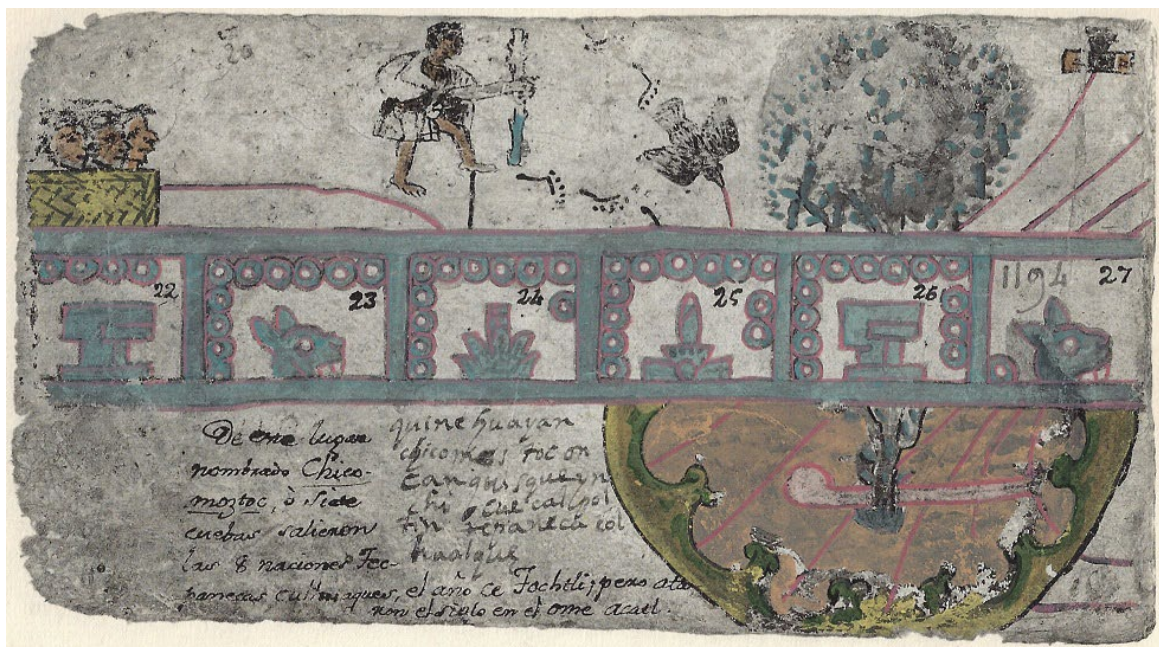 20
22
23
24
25
26
1194
27
De este lugar
nombrado Chico-
moztoc, ò siete
cuebas salieron
las 8 naciones Tec-
panecas Culhuaques, el año ce Tochtli; pero ata
ron el siglo en el ome acatl.
quinehuayan
chicomos toc on
can quis que yn
chi cue calpol
tin tepaneca col
huaque